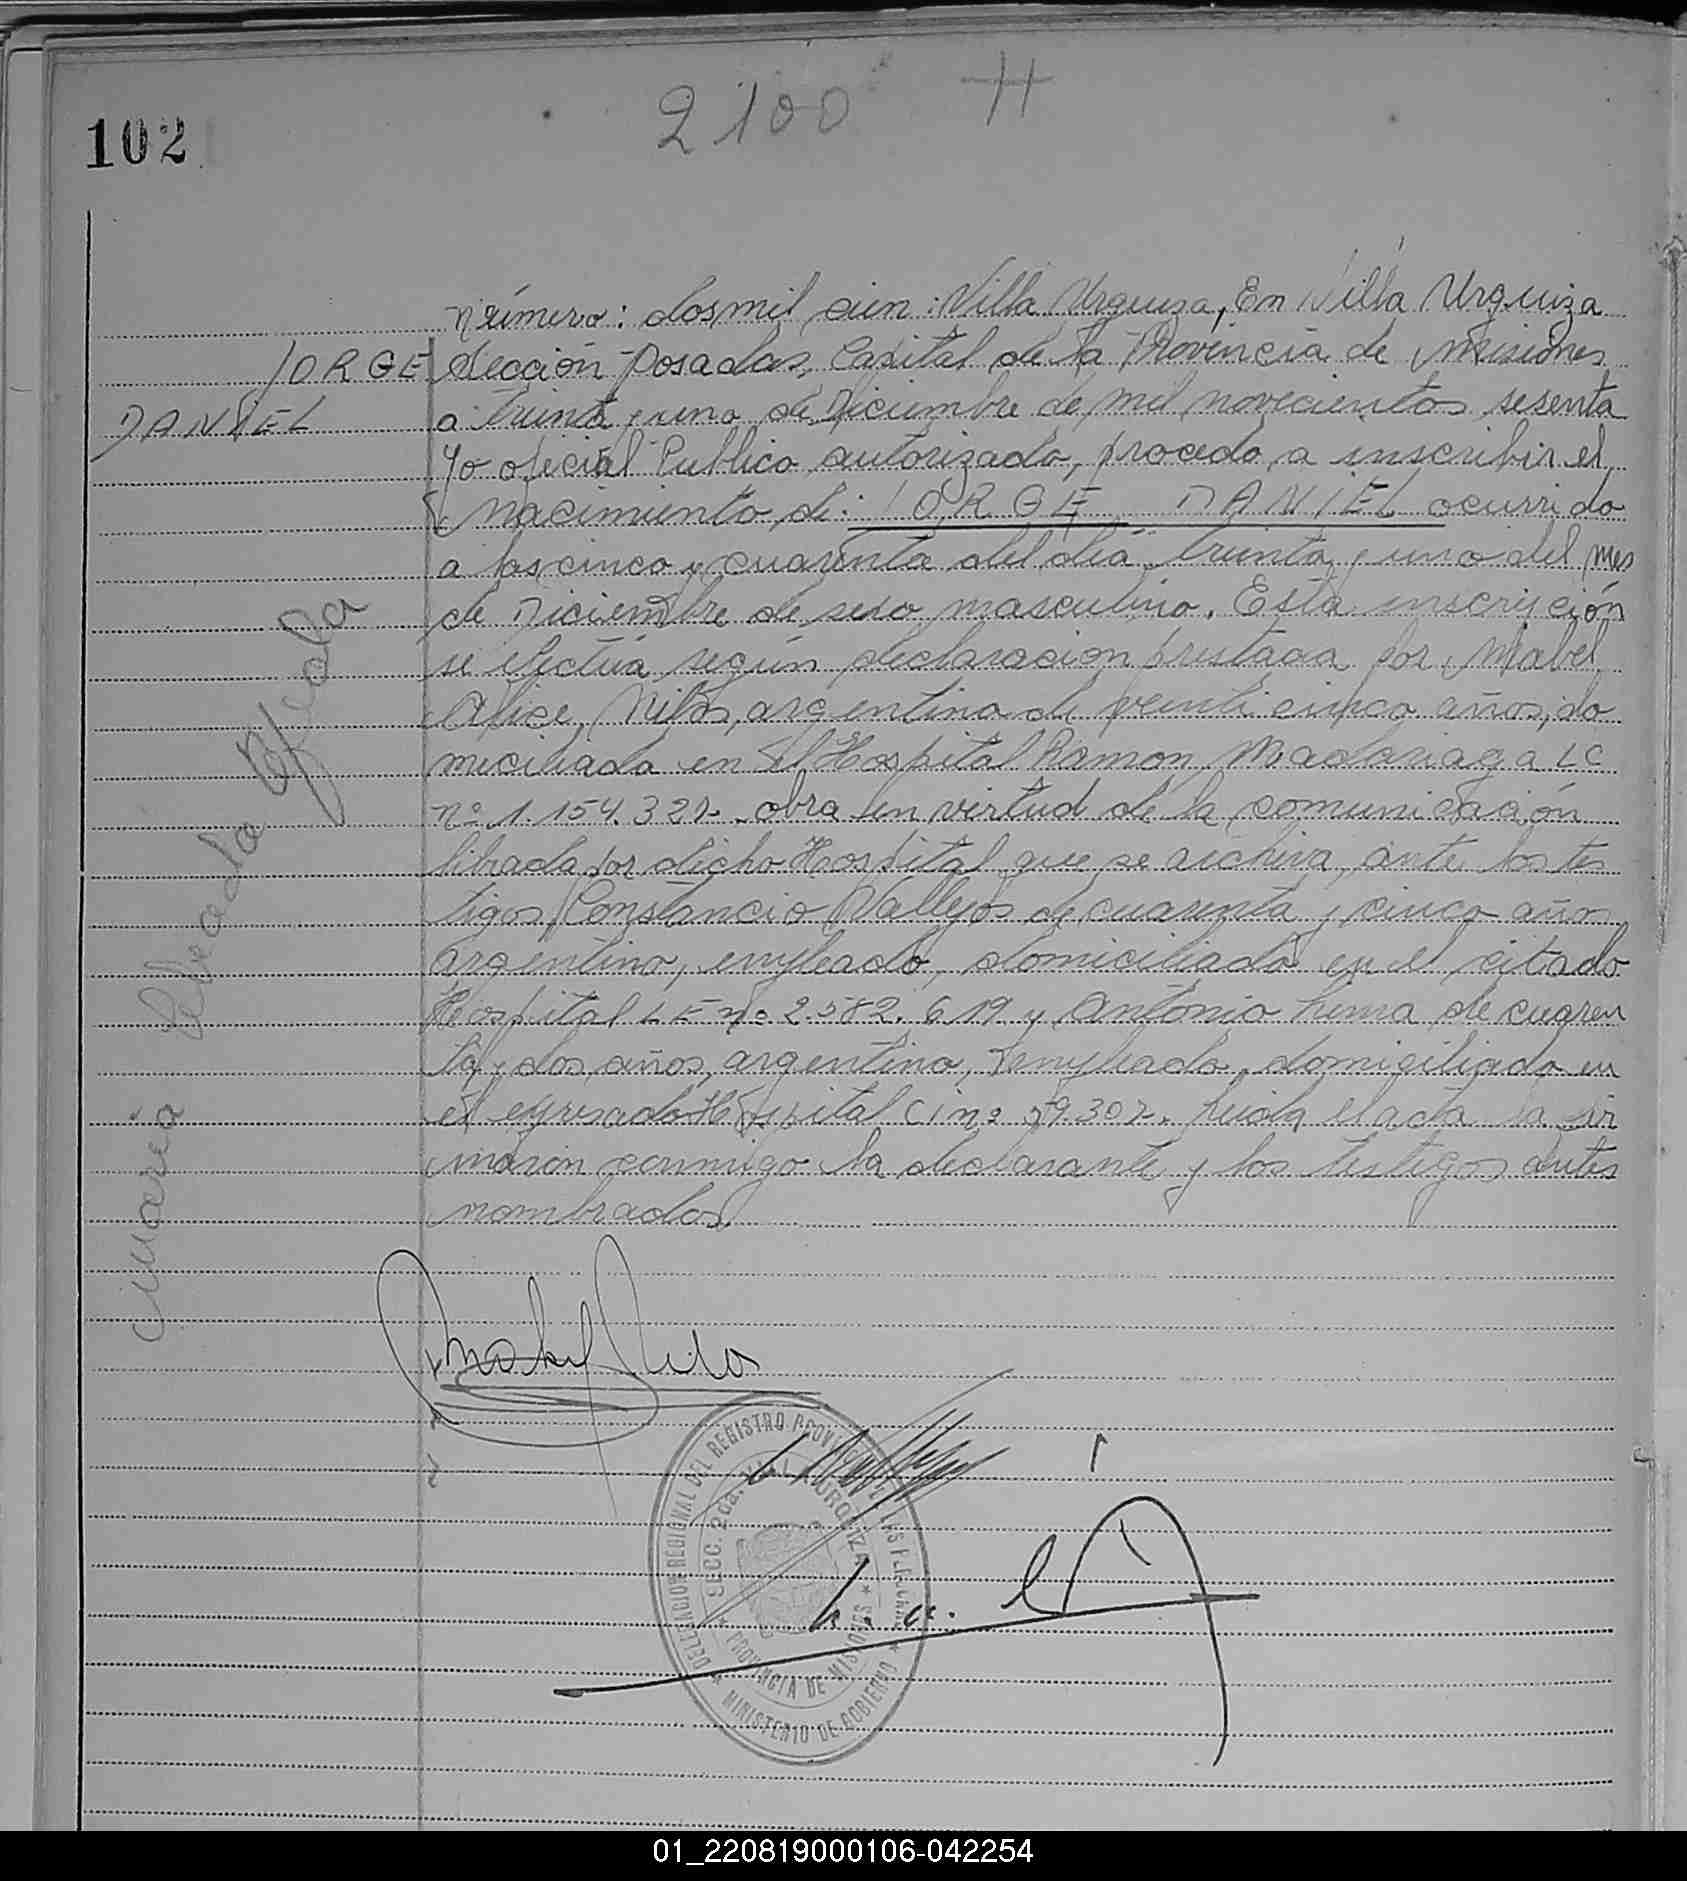 102
2100 H
número: dosmil cien: Villa Urquiza, En Villa Urquiza
JORGE Sección Posadas, Capital de la Provincia de Misiones
DANIEL a treinta y uno de Diciembre de mil novecientos sesenta
Yo oficial Publico autorizado, procedo a inscribir el
nacimiento de: JORGE DANIEL ocurrido
a las cinco y cuarenta del dia treinta y uno del mes
de Diciembre de sexo masculino. Esta inscripción
se efectúa según declaracion prestada por Mabel
Alice Nilos, argentina de veinti cinco años, do
miciliada en el Hospital Ramon Madariaga LC
nº 1.154.327. obra en virtud de la comunicación
librada por dicho Hospital que se archiva, ante los tes
tigos Constancio Vallejos de cuarenta y cinco años
argentino, empleado, domiciliado en el citado
Hospital LE nº 2.582.619 y Antonio Lima de cuaren
ta y dos años, argentino, empleado, domiciliado en
el expresado Hospital CI nº 59.307. Leida el acta la fir
maron conmigo la declarante y los testigos antes
nombrados.
Mabel Nilos
DELEGACION REGIONAL DEL REGISTRO PROVINCIAL DE LAS PERSONAS
SECC. 2da. VILLA URQUIZA
PROVINCIA DE MISIONES
MINISTERIO DE GOBIERNO
01_220819000106-042254